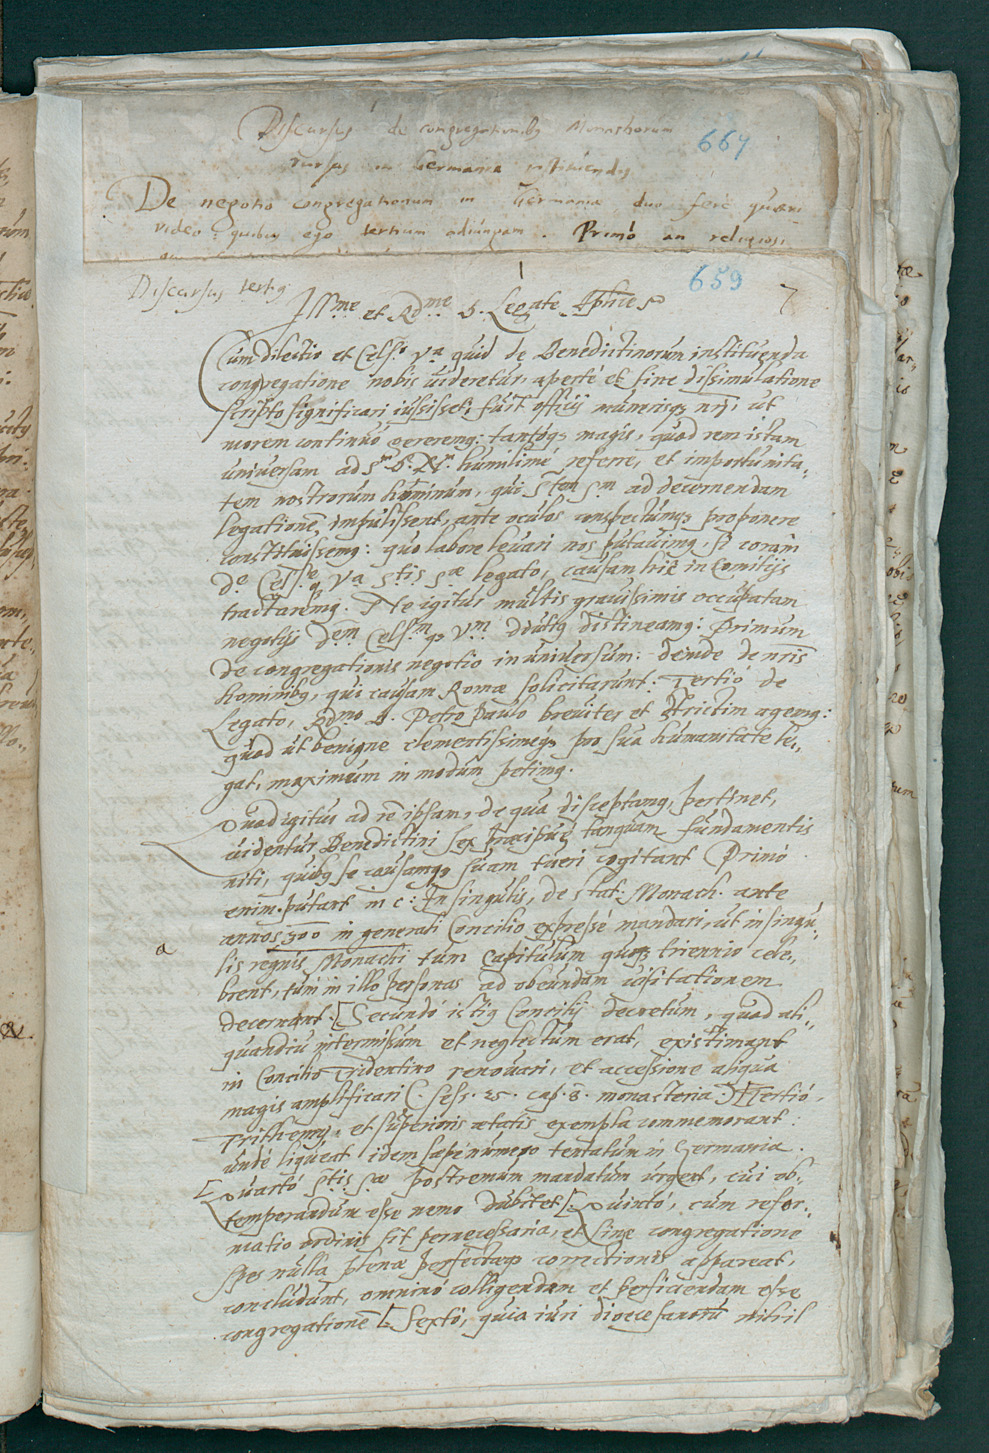 Discursus de congregationibus Monachorum
rursus in Germania instituendis
667
De negotio congregationum in Germania duo fere quæri
video: quibus ego tertium adiungam. Primò an religiosi
659
7
Discursus tertius
Ill.me et Rd.me D. Legate Aplice
Cum dilectio et Cels.o v.a quid de Benedictinorum instituenda
congregatione nobis uideretur, apertè et sine dissimulatione
scripto significari iussisset, fuit officij munerisq; nrj, ut
morem continuò gereremq: tantoq; magis, quod rem istam
uniuersam ad S.m D. N.m humilimè referre, et importunita-
tem nostrorum hominum, qui S.tem S.m ad decernendam
legationē impulissent, ante oculos conspectumq; proponere
constituissemq: quo labore leuari nos putauimq, si coram
D.e Cels.e q; v.a S.tis S.æ legato, causam hic in Comitijs
tractaremq. Ne igitur multis grauissimis occupatam
negotijs D.em Cels.m q; V.m diutiq distineamq: Primum
de congregationis negotio in uniuersum: deinde de nris
hominibq, qui causam Romæ solicitarunt: Tertiò de
Legato, Rd.mo D. Petro Paulo breuiter et strictim agemq:
quod ut benigne clementissimeq; pro sua humanitate le-
gat, maximum in modum petimq.
Quod igitur ad rē ipsam, de qua disceptamq, pertinet,
uidentur Benedictini sex præcipuis tanquam fundamentis
niti, quibq se causamq; suam tueri cogitant Primò
enim putant in c: In singulis, de stat. Monach. ante
annos 300 in generali Concilio expressè mandari, ut in singu-
a
lis regnis Monachi tum Capitulum quoq; triennio cele-
brent, tum in illo personas ad obeundam uisitationem
decernant. [Secundò istiq Concilij decretum, quod ali-
quandiu intermissum et neglectum erat, existimant
in Concilio Tridentino renouari, et accessione aliqua
magis amplificari C. sess. 25. cap. 8. monasteria.) [Tertiò,
Trithemij, et superioris ætatis exempla commemorant:
unde liqueat idem sæpenumero tentatum in Germania.
[Quartò S.tis S.æ postremum mandatum urgent, cui ob-
temperandum esse nemo dubitet [. Quintò, cum refor-
matio ordinis sit pernecessaria, et sine congregatione
spes nulla plenæ perfectæq; correctionis appareat,
concludunt, omninò colligendam et perficiendam esse
congregationē [Sextò, quia iuri dioecesanorū nihil